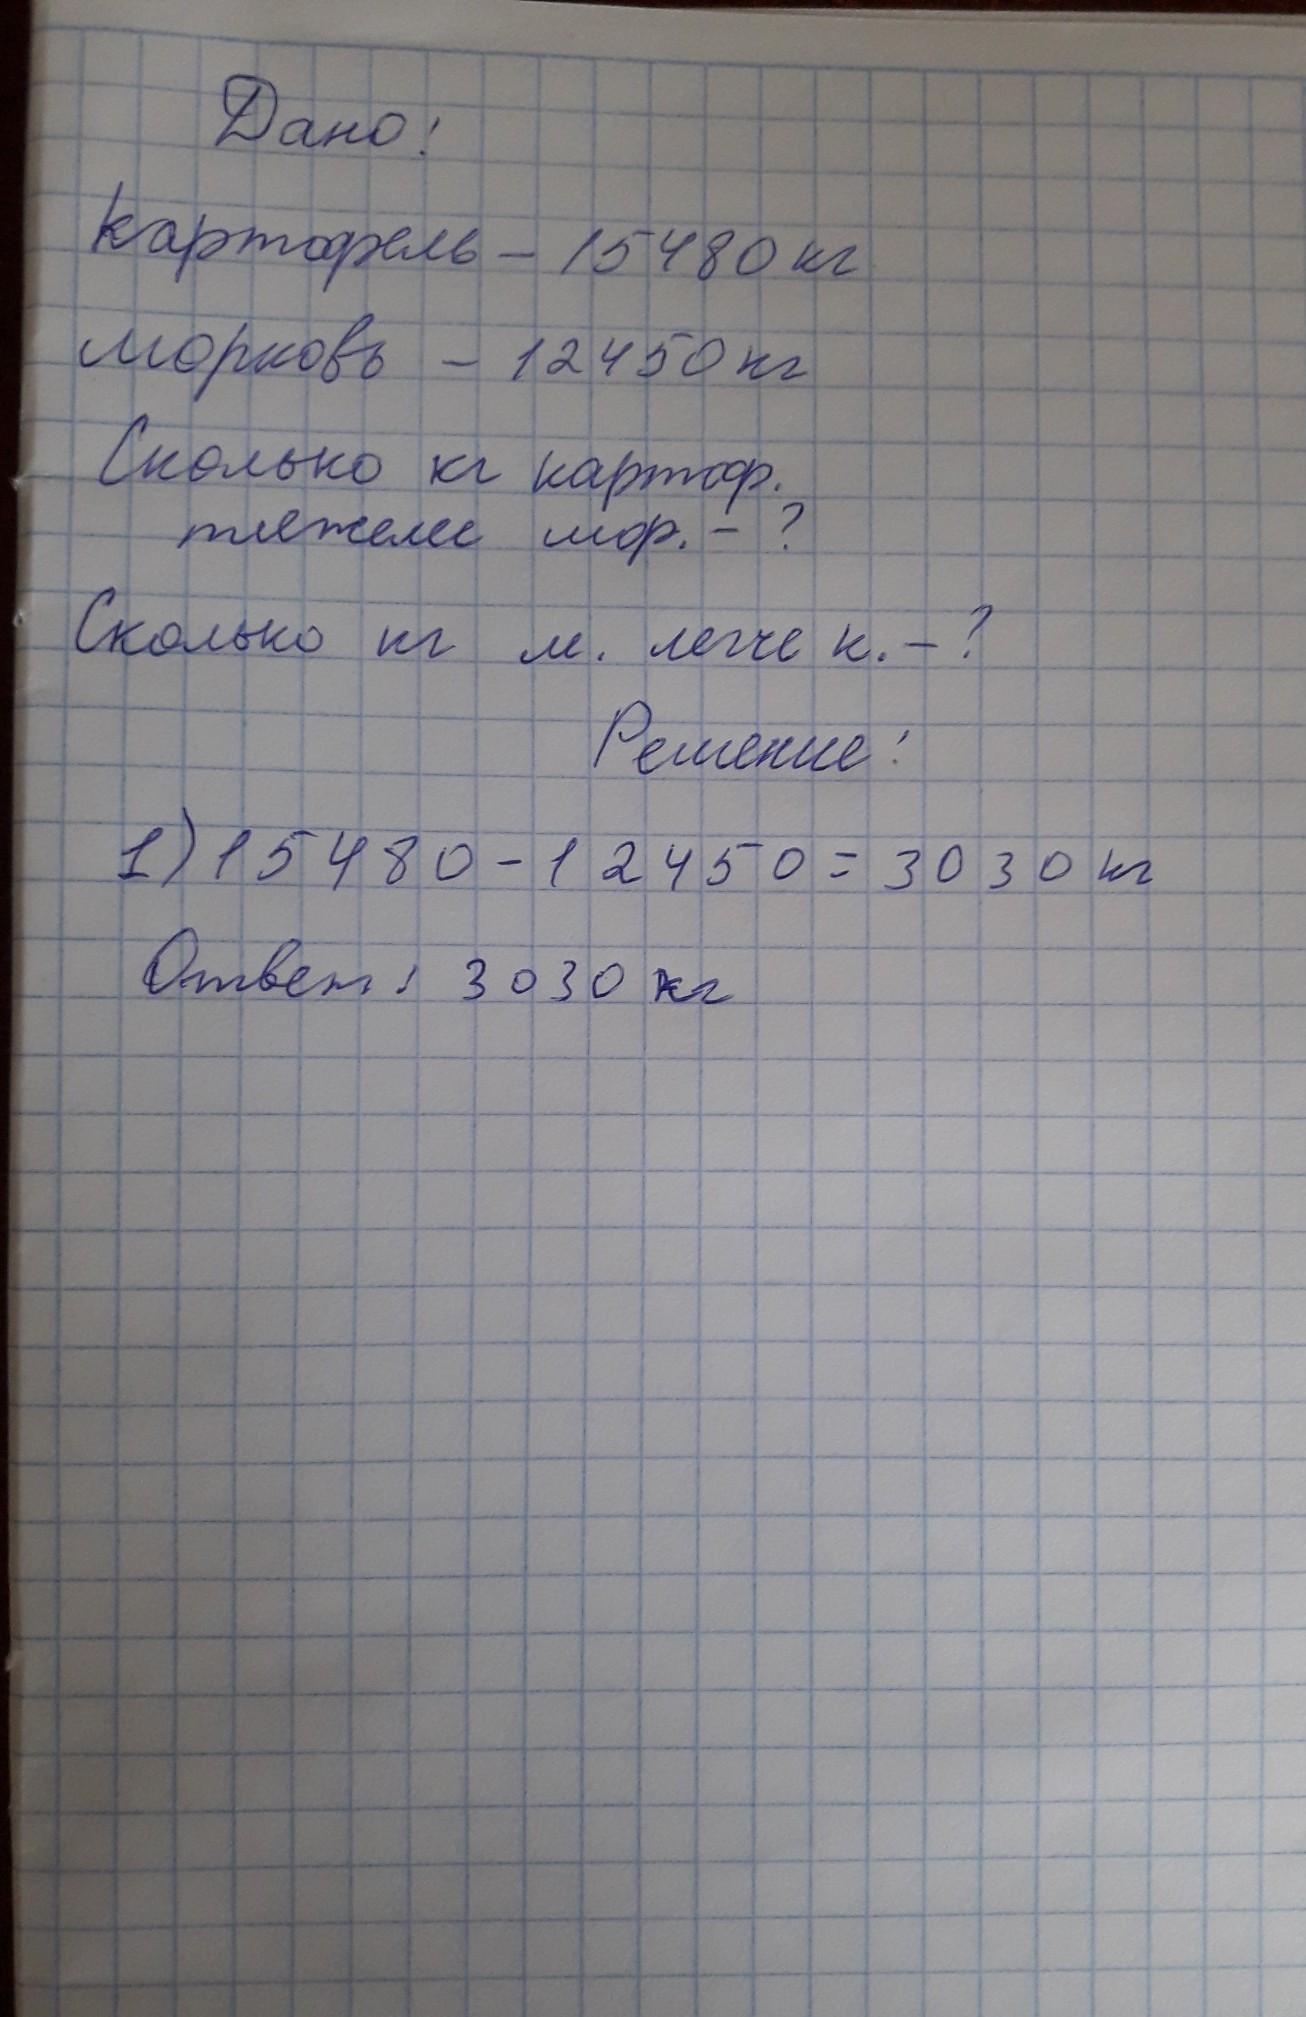 Дано:
картофель - 15480 кг
морковь - 12450 кг
Сколько кг картоф.
тяжелее мор. - ?
Сколько кг м. легче к. - ?
Решение:
1) 15480 - 12450 = 3030 кг
Ответ: 3030 кг